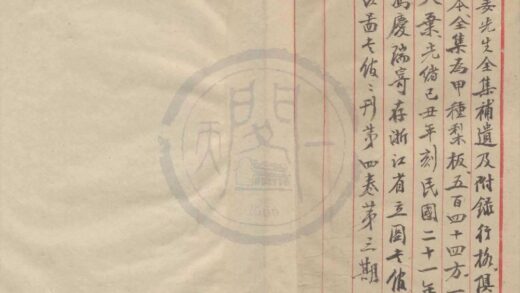 先生全集補遺及附錄行格俱
本全集為甲種梨板五百四十四方一
八葉光緒己丑年刻民國二十一年
慶瑞寄存浙江省立圖書館
館刊第四卷第三期
天一閣